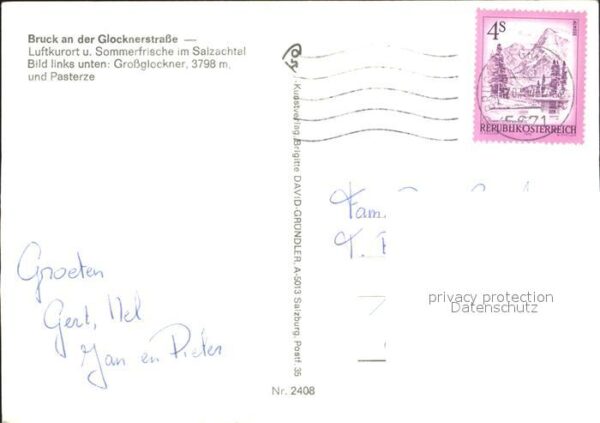 Bruck an der Glocknerstraße —
Luftkurort u. Sommerfrische im Salzachtal
Bild links unten: Großglockner, 3798 m,
und Pasterze
Kunstverlag Brigitte DAVID-GRÜNDLER, A-5013 Salzburg, Postf. 35
Nr. 2408
4S
ALMSEE
REPUBLIK ÖSTERREICH
5671
Fam.
privacy protection
Datenschutz
Groeten
Gert, Nel
Jan en Pieter